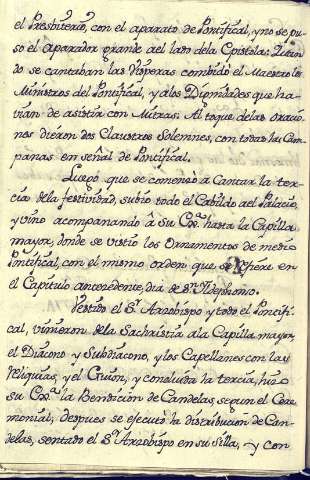 el Presbiterio, con el aparato de Pontifical, y no se pu-
so el Aparador grande del lado dela Epistola: Quan-
do se cantaban las Visperas combidò el Maestro los
Ministros del Pontifical, y alos Dignidades que ha-
vian de asistir con Mitras: Al toque delas oracio-
nes dieron dos Claustros Solemnes, con todas las Cam-
panas en señal de Pontifical.
Luego que se comenzò a Cantar la ter-
cia dela festividad, subio todo el Cabildo ael Palacio,
y vino acompañando â Su Exª. hasta la Capilla
mayor, donde se vistio los Ornamentos de medio
Pontifical, con el mismo orden que se refiere en
el Capitulo antecedente, dia de Sn. Ildephonso.
Vestido el Sr. Arzobispo y todo el Pontifi-
cal, vinieron dela Sachristia ala Capilla mayor,
el Diacono y Subdiacono, y los Capellanes con las
Reliquias, y el Guion, y concluida la tercia, hizo
su Exª. la Bendicion de Candelas, segun el Cere-
monial; despues se executò la distribucion de Can-
delas, sentado el Sr. Arzobispo en su Silla, y con